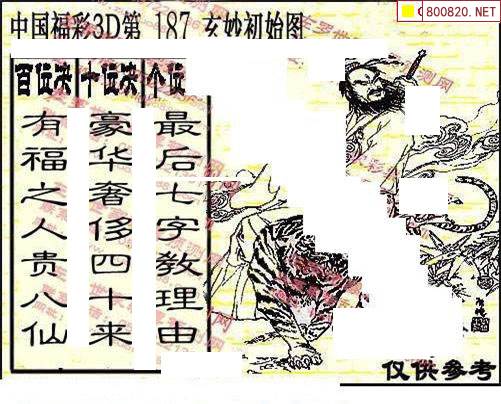 中国福彩3D第 187 玄妙初始图
800820.NET
百位决 十位决 个位
有福之人贵八仙
豪华奢侈四十来
最后七字教理由
仅供参考